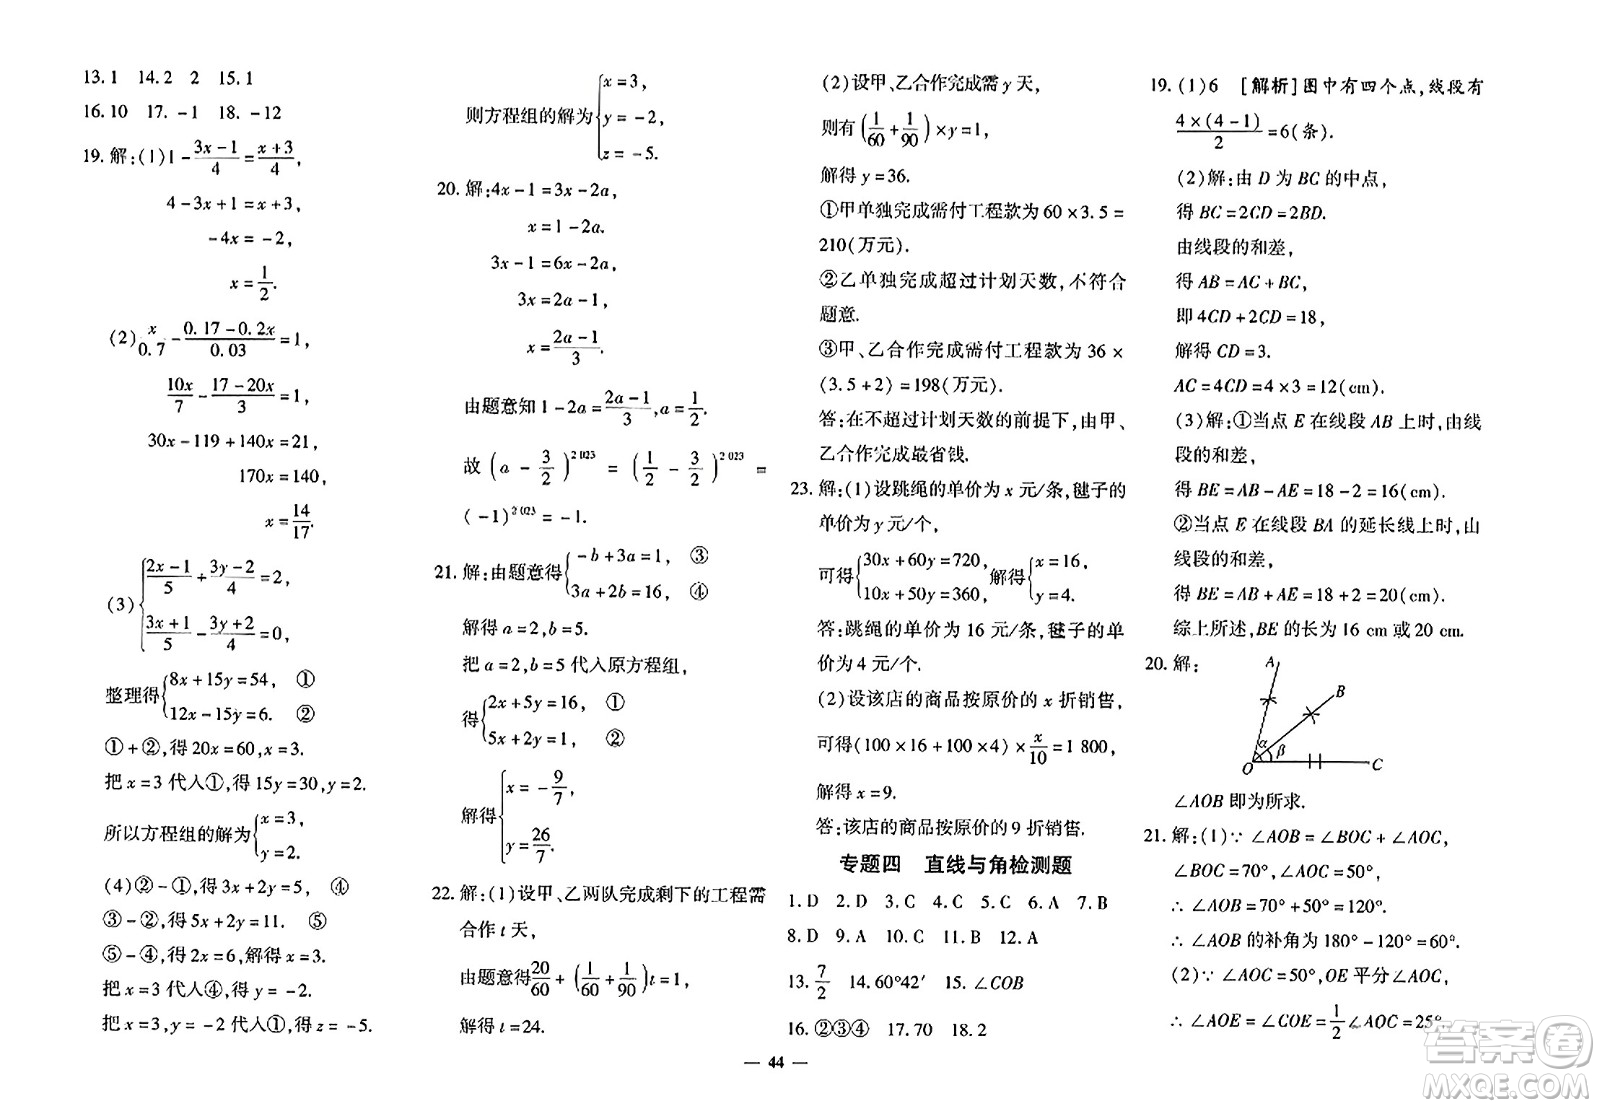 13. 1　14. 2　2　15. 1
16. 10　17. -1　18. -12
19. 解:(1)1 - (3x-1)/4 = (x+3)/4,
4-3x+1=x+3,
-4x=-2,
x=1/2.
(2) x/0.7 - (0.17-0.2x)/0.03 = 1,
10x/7 - (17-20x)/3 = 1,
30x-119+140x=21,
170x=140,
x=14/17.
(3) { (2x-1)/5 + (3y-2)/4 = 2,
(3x+1)/5 - (3y+2)/4 = 0,
整理得 { 8x+15y=54,　①
12x-15y=6.　②
①+②,得 20x=60,x=3.
把 x=3 代入①,得 15y=30,y=2.
所以方程组的解为 { x=3,
y=2.
(4)②-①,得 3x+2y=5,　④
③-②,得 5x+2y=11.　⑤
⑤-④,得 2x=6,解得 x=3.
把 x=3 代入④,得 y=-2.
把 x=3,y=-2 代入①,得 z=-5.
则方程组的解为 { x=3,
y=-2,
z=-5.
20. 解:4x-1=3x-2a,
x=1-2a.
3x-1=6x-2a,
3x=2a-1,
x=(2a-1)/3.
由题意知 1-2a=(2a-1)/3,a=1/2.
故 (a-3/2)^2 023 = (1/2-3/2)^2 023 =
(-1)^2 023=-1.
21. 解:由题意得 { -b+3a=1,　③
3a+2b=16,　④
解得 a=2,b=5.
把 a=2,b=5 代入原方程组,
得 { 2x+5y=16,　①
5x+2y=1,　②
解得 { x=-9/7,
y=26/7.
22. 解:(1)设甲、乙两队完成剩下的工程需
合作 t 天,
由题意得 20/60 + (1/60+1/90)t=1,
解得 t=24.
(2)设甲、乙合作完成需 y 天,
则有 (1/60+1/90)×y=1,
解得 y=36.
①甲单独完成需付工程款为 60×3.5=
210(万元).
②乙单独完成超过计划天数,不符合
题意.
③甲、乙合作完成需付工程款为 36×
(3.5+2)=198(万元).
答:在不超过计划天数的前提下,由甲、
乙合作完成最省钱.
23. 解:(1)设跳绳的单价为 x 元/条,毽子的
单价为 y 元/个,
可得 { 30x+60y=720,
10x+50y=360, 解得 { x=16,
y=4.
答:跳绳的单价为 16 元/条,毽子的单
价为 4 元/个.
(2)设该店的商品按原价的 x 折销售,
可得(100×16+100×4)×x/10=1 800,
解得 x=9.
答:该店的商品按原价的 9 折销售.
专题四　直线与角检测题
1. D　2. D　3. C　4. C　5. C　6. A　7. B
8. D　9. A　10. C　11. B　12. A
13. 7/2　14. 60°42′　15. ∠COB
16. ②③④　17. 70　18. 2
19. (1)6　[解析]图中有四个点,线段有
4×(4-1)/2=6(条).
(2)解:由 D 为 BC 的中点,
得 BC=2CD=2BD.
由线段的和差,
得 AB=AC+BC,
即 4CD+2CD=18,
解得 CD=3.
AC=4CD=4×3=12(cm).
(3)解:①当点 E 在线段 AB 上时,由线
段的和差,
得 BE=AB-AE=18-2=16(cm).
②当点 E 在线段 BA 的延长线上时,由
线段的和差,
得 BE=AB+AE=18+2=20(cm).
综上所述,BE 的长为 16 cm 或 20 cm.
20. 解:
A
B
α
β
O
C
∠AOB 即为所求.
21. 解:(1)∵∠AOB=∠BOC+∠AOC,
∠BOC=70°,∠AOC=50°,
∴∠AOB=70°+50°=120°.
∴∠AOB 的补角为 180°-120°=60°.
(2)∵∠AOC=50°,OE 平分∠AOC,
∴∠AOE=∠COE=1/2∠AOC=25°.
— 44 —
答案圈
MXQE.COM